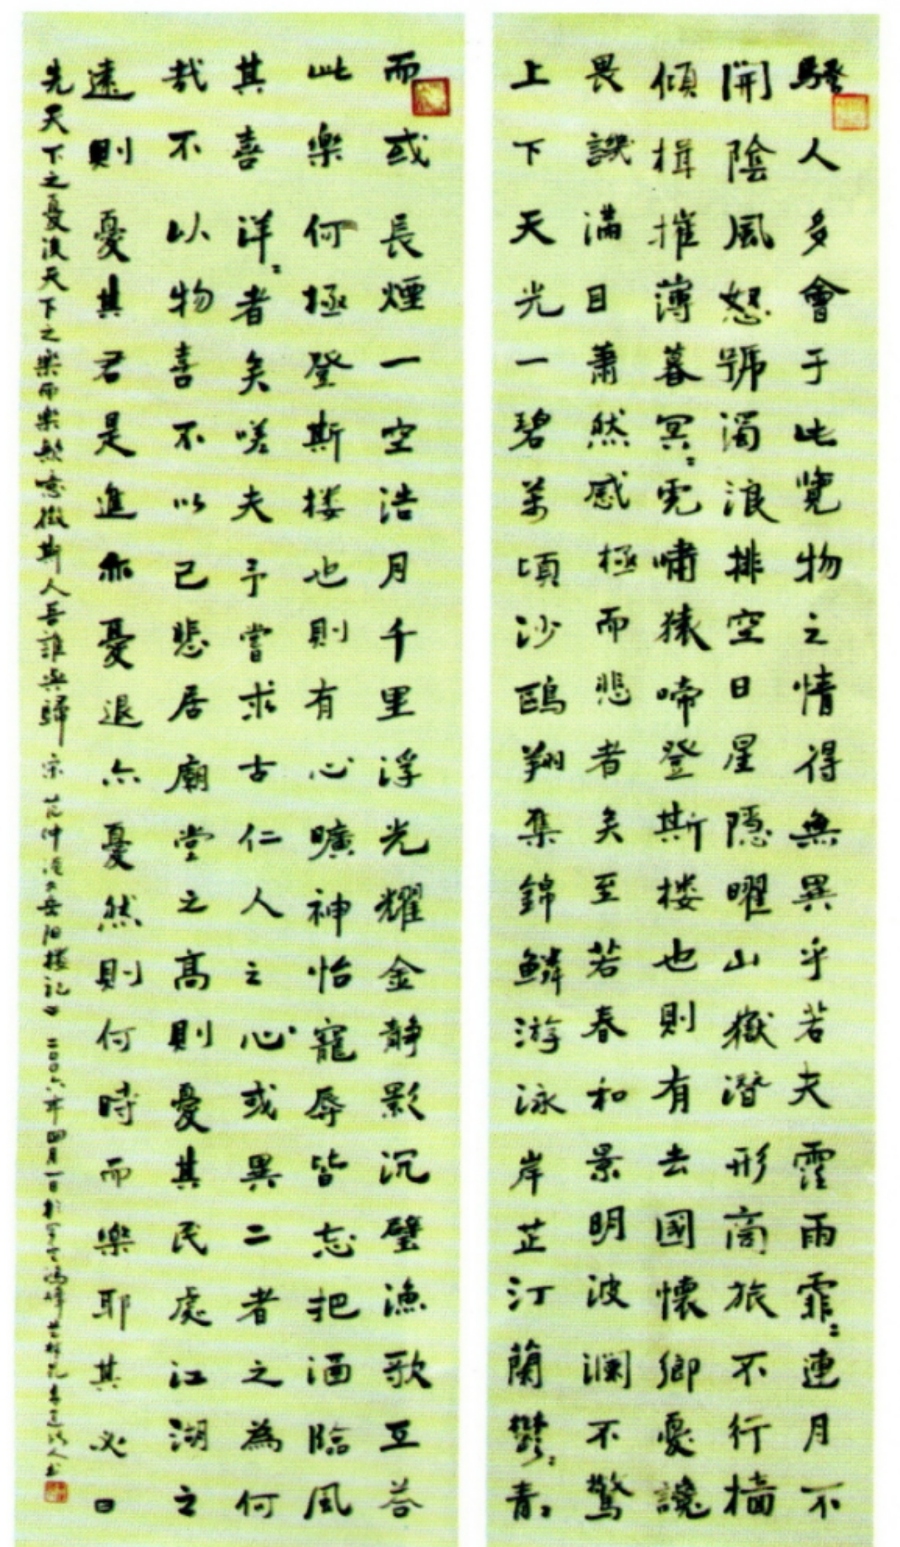 騷人多會于此覽物之情得無異乎若夫霪雨霏〻連月不
開陰風怒號濁浪排空日星隱曜山嶽潛形商旅不行檣
傾楫摧薄暮冥〻虎嘯猿啼登斯楼也則有去國懷鄉憂讒
畏譏滿目蕭然感極而悲者矣至若春和景明波瀾不驚
上下天光一碧萬頃沙鷗翔集錦鱗游泳岸芷汀蘭鬱〻青〻
而或長煙一空浩月千里浮光耀金静影沉璧漁歌互答
此樂何極登斯楼也則有心曠神怡寵辱皆忘把酒臨風
其喜洋〻者矣嗟夫予嘗求古仁人之心或異二者之為何
哉不以物喜不以己悲居廟堂之高則憂其民處江湖之
遠則憂其君是進亦憂退亦憂然則何時而樂耶其必曰
先天下之憂後天下之樂而樂歟噫微斯人吾誰與歸 宋 范仲淹岳阳楼記 二〇〇六年四月一日於